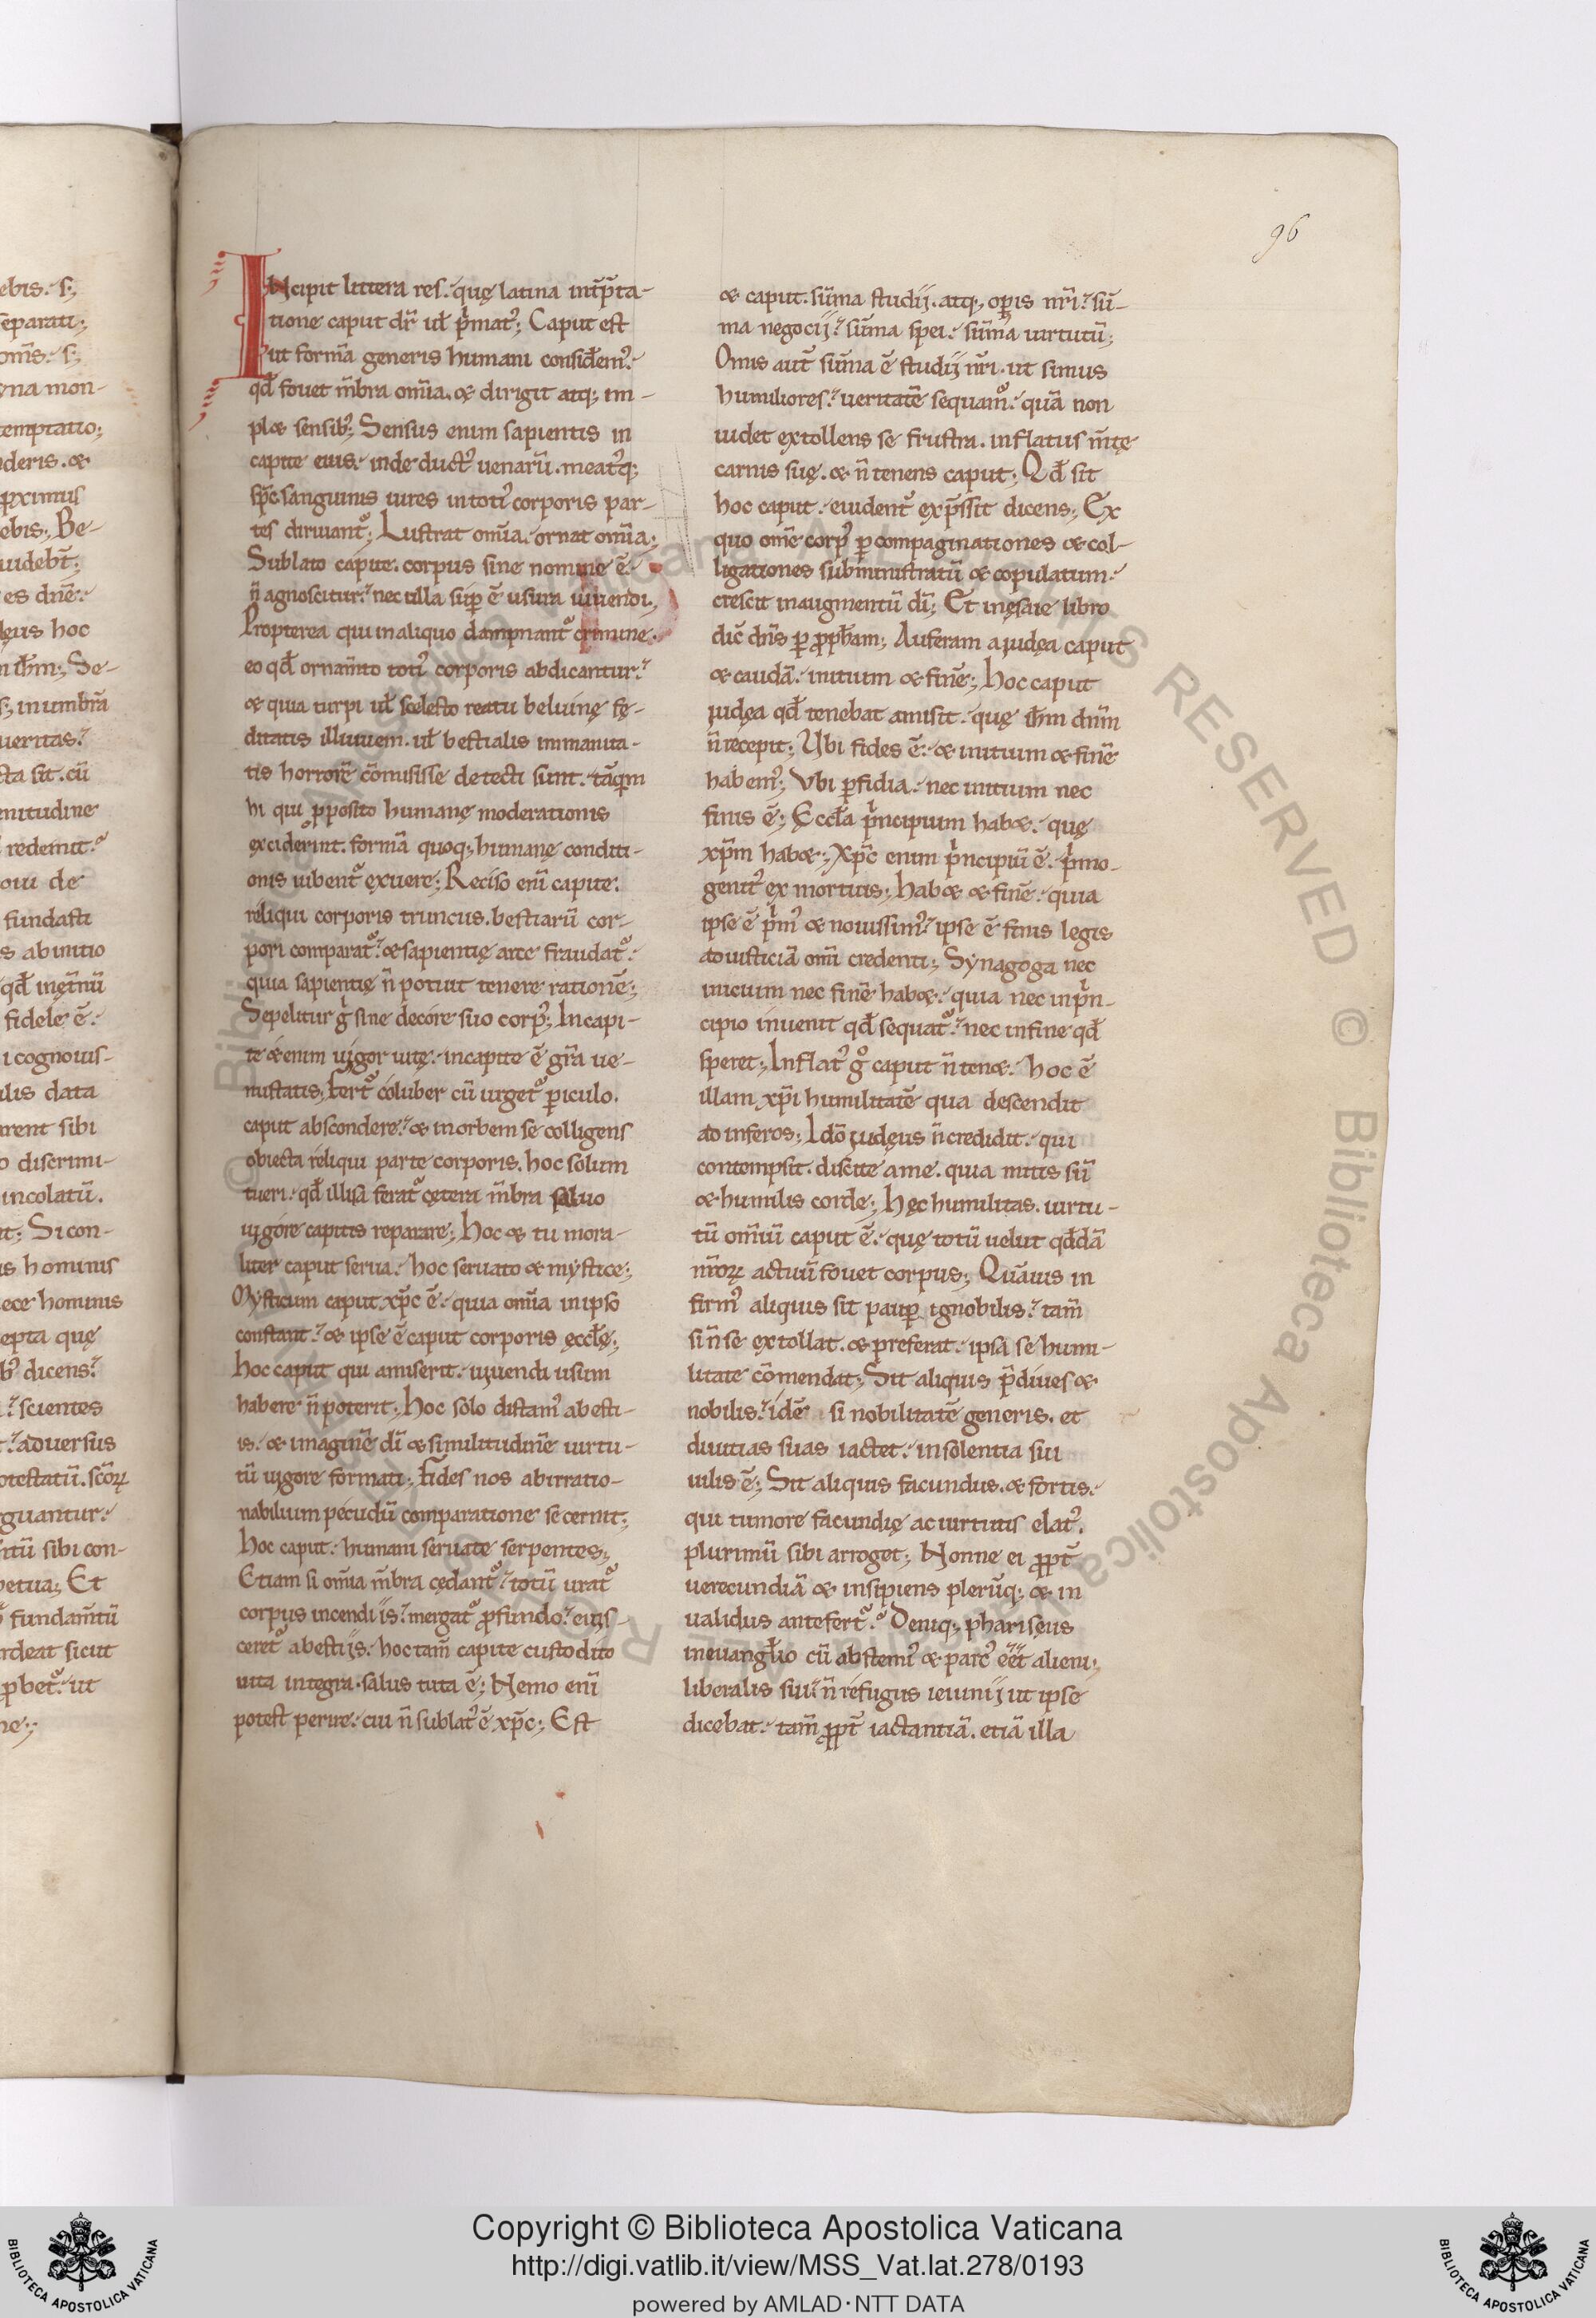 96
INcipit littera res. quę latina int̄p̄ta-
tione caput dr̄ ul̄ p̍mat᷒; Caput est
ut formā generis humani consid̄em᷒.
qđ fouet m̄bra om̄ia. & dirigit atq; im-
plet sensib᷒; Sensus enim sapientis in
capite eius. inde duct᷒ uenarū. meat᷒q;
sp̄c sanguinis iures in toti᷒ corporis par-
tes diriuant᷑; Lustrat om̄ia. ornat om̄ia;
Sublato capite. corpus sine nomine ē.
n̄ agnoscitur. nec ulla sup̱ ē usura uiuendi;
Propterea qui in aliquo dampnant᷑ crimine.
eo qđ ornam̄to toti᷒ corporis abdicantur.
& quia turpi ul̄ scelesto reatu beluinę fę-
ditatis illuuiem. ul̄ bestialis immanita-
tis horrorē cōmisisse detecti sunt. tāq̄m
hi qui ꝓposito humanę moderationis
exciderint. formā quoq; humanę conditi-
onis iubent᷑ exuere; Reciso enī capite.
reliqui corporis truncus. bestiarū cor-
pori comparat᷑. & sapientię arce fraudat᷑.
quia sapientię n̄ potuit tenere rationē;
Sepelitur g̍ sine decore suo corp᷒; In capi-
te & enim uigor uitę. in capite ē gr̄a ue-
nustatis; Fert᷑ coluber cū urget᷑ ꝑiculo.
caput abscondere. & in orbem se colligens
obiecta reliqui parte corporis. hoc solum
tueri. qđ illisa ferat᷑ cętera m̄bra saluo
uigore capitis reparare; Hoc & tu mora-
liter caput serua. hoc seruato & mystice;
Mysticum caput xp̄c ē. quia om̄ia in ipso
constant. & ipse ē caput corporis ęcclę̄;
Hoc caput qui amiserit. uiuendi usum
habere n̄ poterit; Hoc solo distam᷒ a besti-
is. & imaginē dī & similitudinē uirtu-
tū uigore formati; Fides nos ab irratio-
nabilium pecudū comparatione secernit;
Hoc caput. humani seruate serpentes;
Etiam si om̄ia m̄bra cędant᷑. totū urat᷑
corpus incendiis. mergat᷑ ꝓfundo. euis-
ceret᷑ a bestijs. hoc tam̄ capite custodito
uita integra. salus tuta ē; Nemo enī
potest perire. cui n̄ sublat᷒ ē xp̄c; Est
& caput. sūma studij. atq; oꝑis nr̄i. sū-
ma negocij. sūma spei. sūma uirtutū;
Omis aut̄ sūma ē studij nr̄i. ut simus
humiliores. ueritatē sequam᷑. quā non
uidet extollens se frustra. inflatus m̄te
carnis suę. & n̄ tenens caput; Qđ sit
hoc caput. euident᷑ exp̄ssit dicens; Ex
quo om̄e corp᷒ ꝑ compaginationes & col-
ligationes subministratū & copulatum.
crescit in augmentū dī; Et in ęsaie libro
dic̄ dn̄s ꝑ ꝓph̄am; Auferam a iudęa caput
& caudā. initium & finē; Hoc caput
iudęa qđ tenebat amisit. quę ih̄m dnm̄
n̄ recepit; Ubi fides ē. & initium & finē
habem᷒; Vbi ꝑfidia. nec initium nec
finis ē; Ęccl̄a p̍ncipium habet. quę
xp̄m habet; Xp̄c enim p̍ncipiū ē. p̍mo-
genit᷒ ex mortuis; Habet & finē. quia
ipse ē p̍m᷒ & nouissim᷒. ipse ē finis legis
ad iusticiā om̄i credenti; Synagoga nec
inicium nec finē habet. quia nec in p̍n-
cipio inuenit qđ sequat᷑. nec in fine qđ
speret; Inflat᷒ gͦ caput n̄ tenet. hoc ē
illam xp̄i humilitatē qua descendit
ad inferos; Idō iudęus n̄ credidit. qui
contempsit. discite a me. quia mitis sū
& humilis corde; Hęc humilitas. uirtu-
tū om̄iū caput ē. quę totū uelut qđdā
nr̄oꝝ actuū fouet corpus; Quāuis in
firm᷒ aliquis sit paup̱ ignobilis. tam̄
si n̄ se extollat. & preferat. ipsa se humi-
litate cōmendat; Sit aliquis p̄diues &
nobilis. idē si nobilitatē generis. et
diuitias suas iactet. insolentia sui
uilis ē; Sit aliquis facundus. & fortis.
qui tumore facundię ac uirtutis elat᷒.
plurimū sibi arroget; Nonne ei ꝓpt̄
uerecundiā & insipiens plerūq; & in
ualidus antefert᷑. Deniq; phariseus
in euangl̄io cū abstemi᷒ & parc᷒ ēēt alieni;
liberalis sui. n̄ refugus ieiunij ut ipse
dicebat. tam̄ ꝓpt̄ iactantiā. etiā illa
Copyright © Biblioteca Apostolica Vaticana
http://digi.vatlib.it/view/MSS_Vat.lat.278/0193
powered by AMLAD·NTT DATA